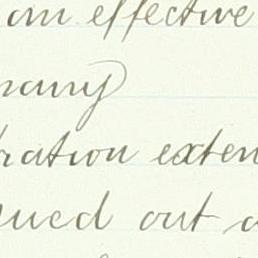 an effective
many
ration exten
ued out a